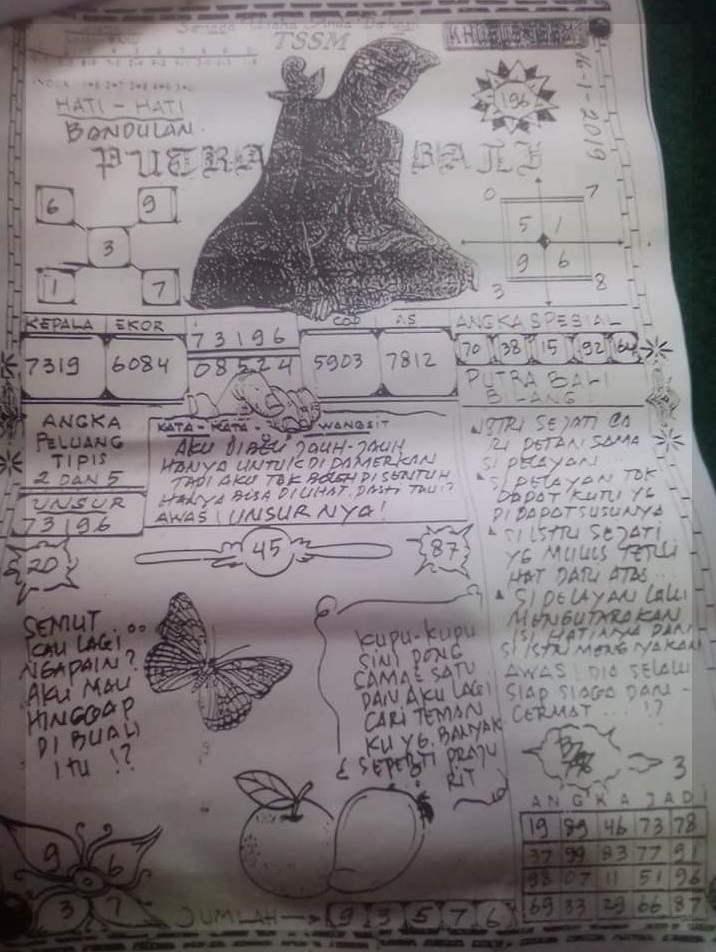 Semoga Usaha Anda Berhasil
TSSM
16-1-2019
196
HATI - HATI
BONDULAN
PUTRA BALI
6
9
3
1
7
0
7
5
1
9
6
3
8
KEPALA
EKOR
73196
COP
AS
ANGKA SPESIAL
7319
6084
08524
5903
7812
70
38
15
92
64
PUTRA BALI
BILANG
ANGKA
PELUANG
TIPIS
2 DAN 5
UNSUR
73196
KATA - KATA - WANGSIT
AKU JAUH-JAUH
HANYA UNTUK DI PAMERKAN
TAPI AKU TOK BOLEH DI SENTUH
HANYA BISA DI LIHAT
AWAS! UNSURNYA!
ISTRI SEJATI
SAMA
SI PELAYAN
SI PELAYAN TOK
DAPAT KUTU YG
DI DAPAT SUSUNYA
SI ISTRI SEJATI
YG MULUS
HAT DARI ATAS
SI PELAYAN LALU
MENGUTARAKAN
ISI HATINYA DAN
SI ISTRI
AWAS! DIA SELALU
SIAP SIAGA DAN -
CERMAT ... !?
20
45
87
SEMUT
KAU LAGI
NGAPAIN?
AKU MAU
HINGGAP
DI BUAH
ITU !?
KUPU-KUPU
SINI DONG
SAMA SATU
DAN AKU LAGI
CARI TEMAN
KU YG. BANYAK
SEPERTI PRAJU
RIT
3
ANGKA JADI
19 89 46 73 78
37 99 83 77 91
98 07 11 51 96
69 33 29 66 87
9
6
0
3
7
JUMLAH
9 3 5 7 6